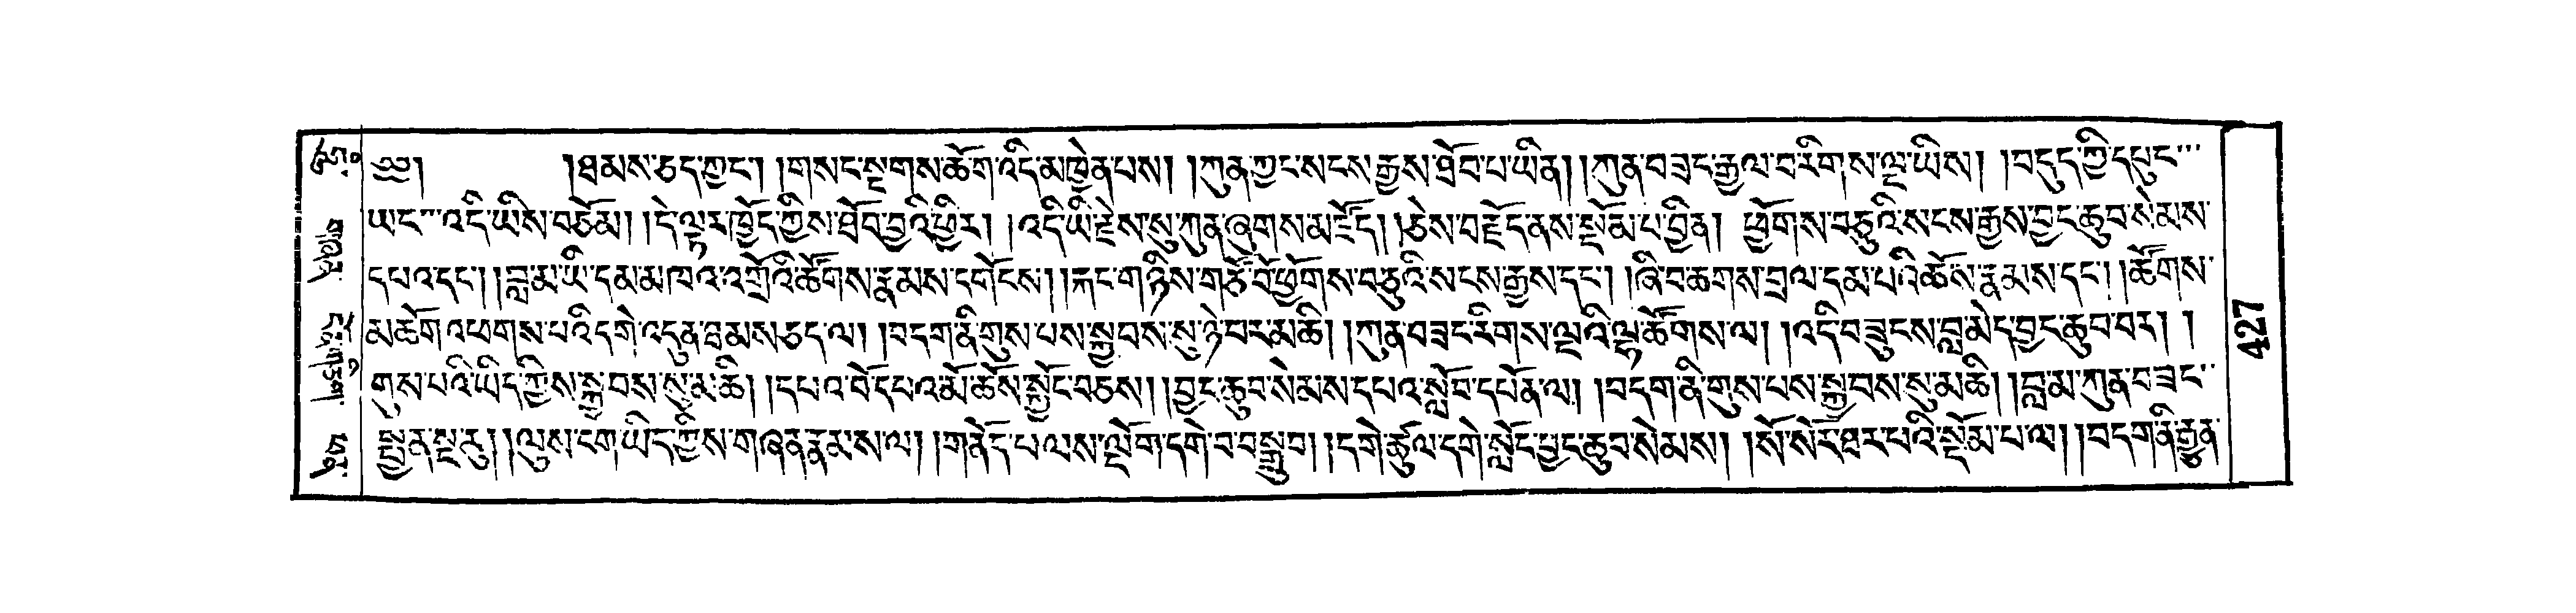 ༄༅། །ཐམས་ཅད་ཀྱང་། །གསང་སྔགས་ཆོག་འདི་མཁྱེན་པས། །ཀུན་ཀྱང་སངས་རྒྱས་ཐོབ་པ་ཡིན། །ཀུན་བཟང་རྒྱལ་བ་རིགས་ལྔ་ཡིས། །བདུད་ཀྱི་དཔུང་
ཡང་འདི་ཡིས་བཅོམ། །དེ་ལྟར་ཁྱོད་ཀྱིས་ཐོབ་བྱའི་ཕྱིར། །འདི་ཡི་རྗེས་སུ་ཀུན་ཞུགས་མཛོད། །ཅེས་བརྗོད་ནས་སྡོམ་པ་བྱིན། ཕྱོགས་བཅུའི་སངས་རྒྱས་བྱང་ཆུབ་སེམས་
དཔའ་དང་། །བླ་མ་ཡི་དམ་མཁའ་འགྲོའི་ཚོགས་རྣམས་དགོངས། །རྐང་གཉིས་གཙོ་བོ་ཕྱོགས་བཅུའི་སངས་རྒྱས་དང་། །ཞི་བ་ཆགས་བྲལ་དམ་པའི་ཆོས་རྣམས་དང་། །ཚོགས་
མཆོག་འཕགས་པའི་དགེ་འདུན་ཐམས་ཅད་ལ། །བདག་ནི་གུས་པས་སྐྱབས་སུ་ཉེ་བར་མཆི། །ཀུན་བཟང་རིགས་ལྔའི་ལྷ་ཚོགས་ལ། །འདི་བཟུངས་བླ་མེད་བྱང་ཆུབ་བར། །
གུས་པའི་ཡིད་ཀྱིས་སྐྱབས་སུ་མཆི། །དཔའ་བོ་དཔའ་མོ་ཆོས་སྐྱོང་བཅས། །བྱང་ཆུབ་སེམས་དཔའ་སློབ་དཔོན་ལ། །བདག་ནི་གུས་པས་སྐྱབས་སུ་མཆི། །བླ་མ་ཀུན་བཟང་
སྤྱན་སྔ་རུ། །ལུས་ངག་ཡིད་ཀྱིས་གཞན་རྣམས་ལ། །གནོད་པ་ལས་ལྡོག་དགེ་བ་བསྒྲུབ། །དགེ་ཚུལ་དགེ་སློང་བྱང་ཆུབ་སེམས། །སོ་སོར་ཐར་པའི་སྡོམ་པ་ལ། །བདག་ནི་རྒྱུན་